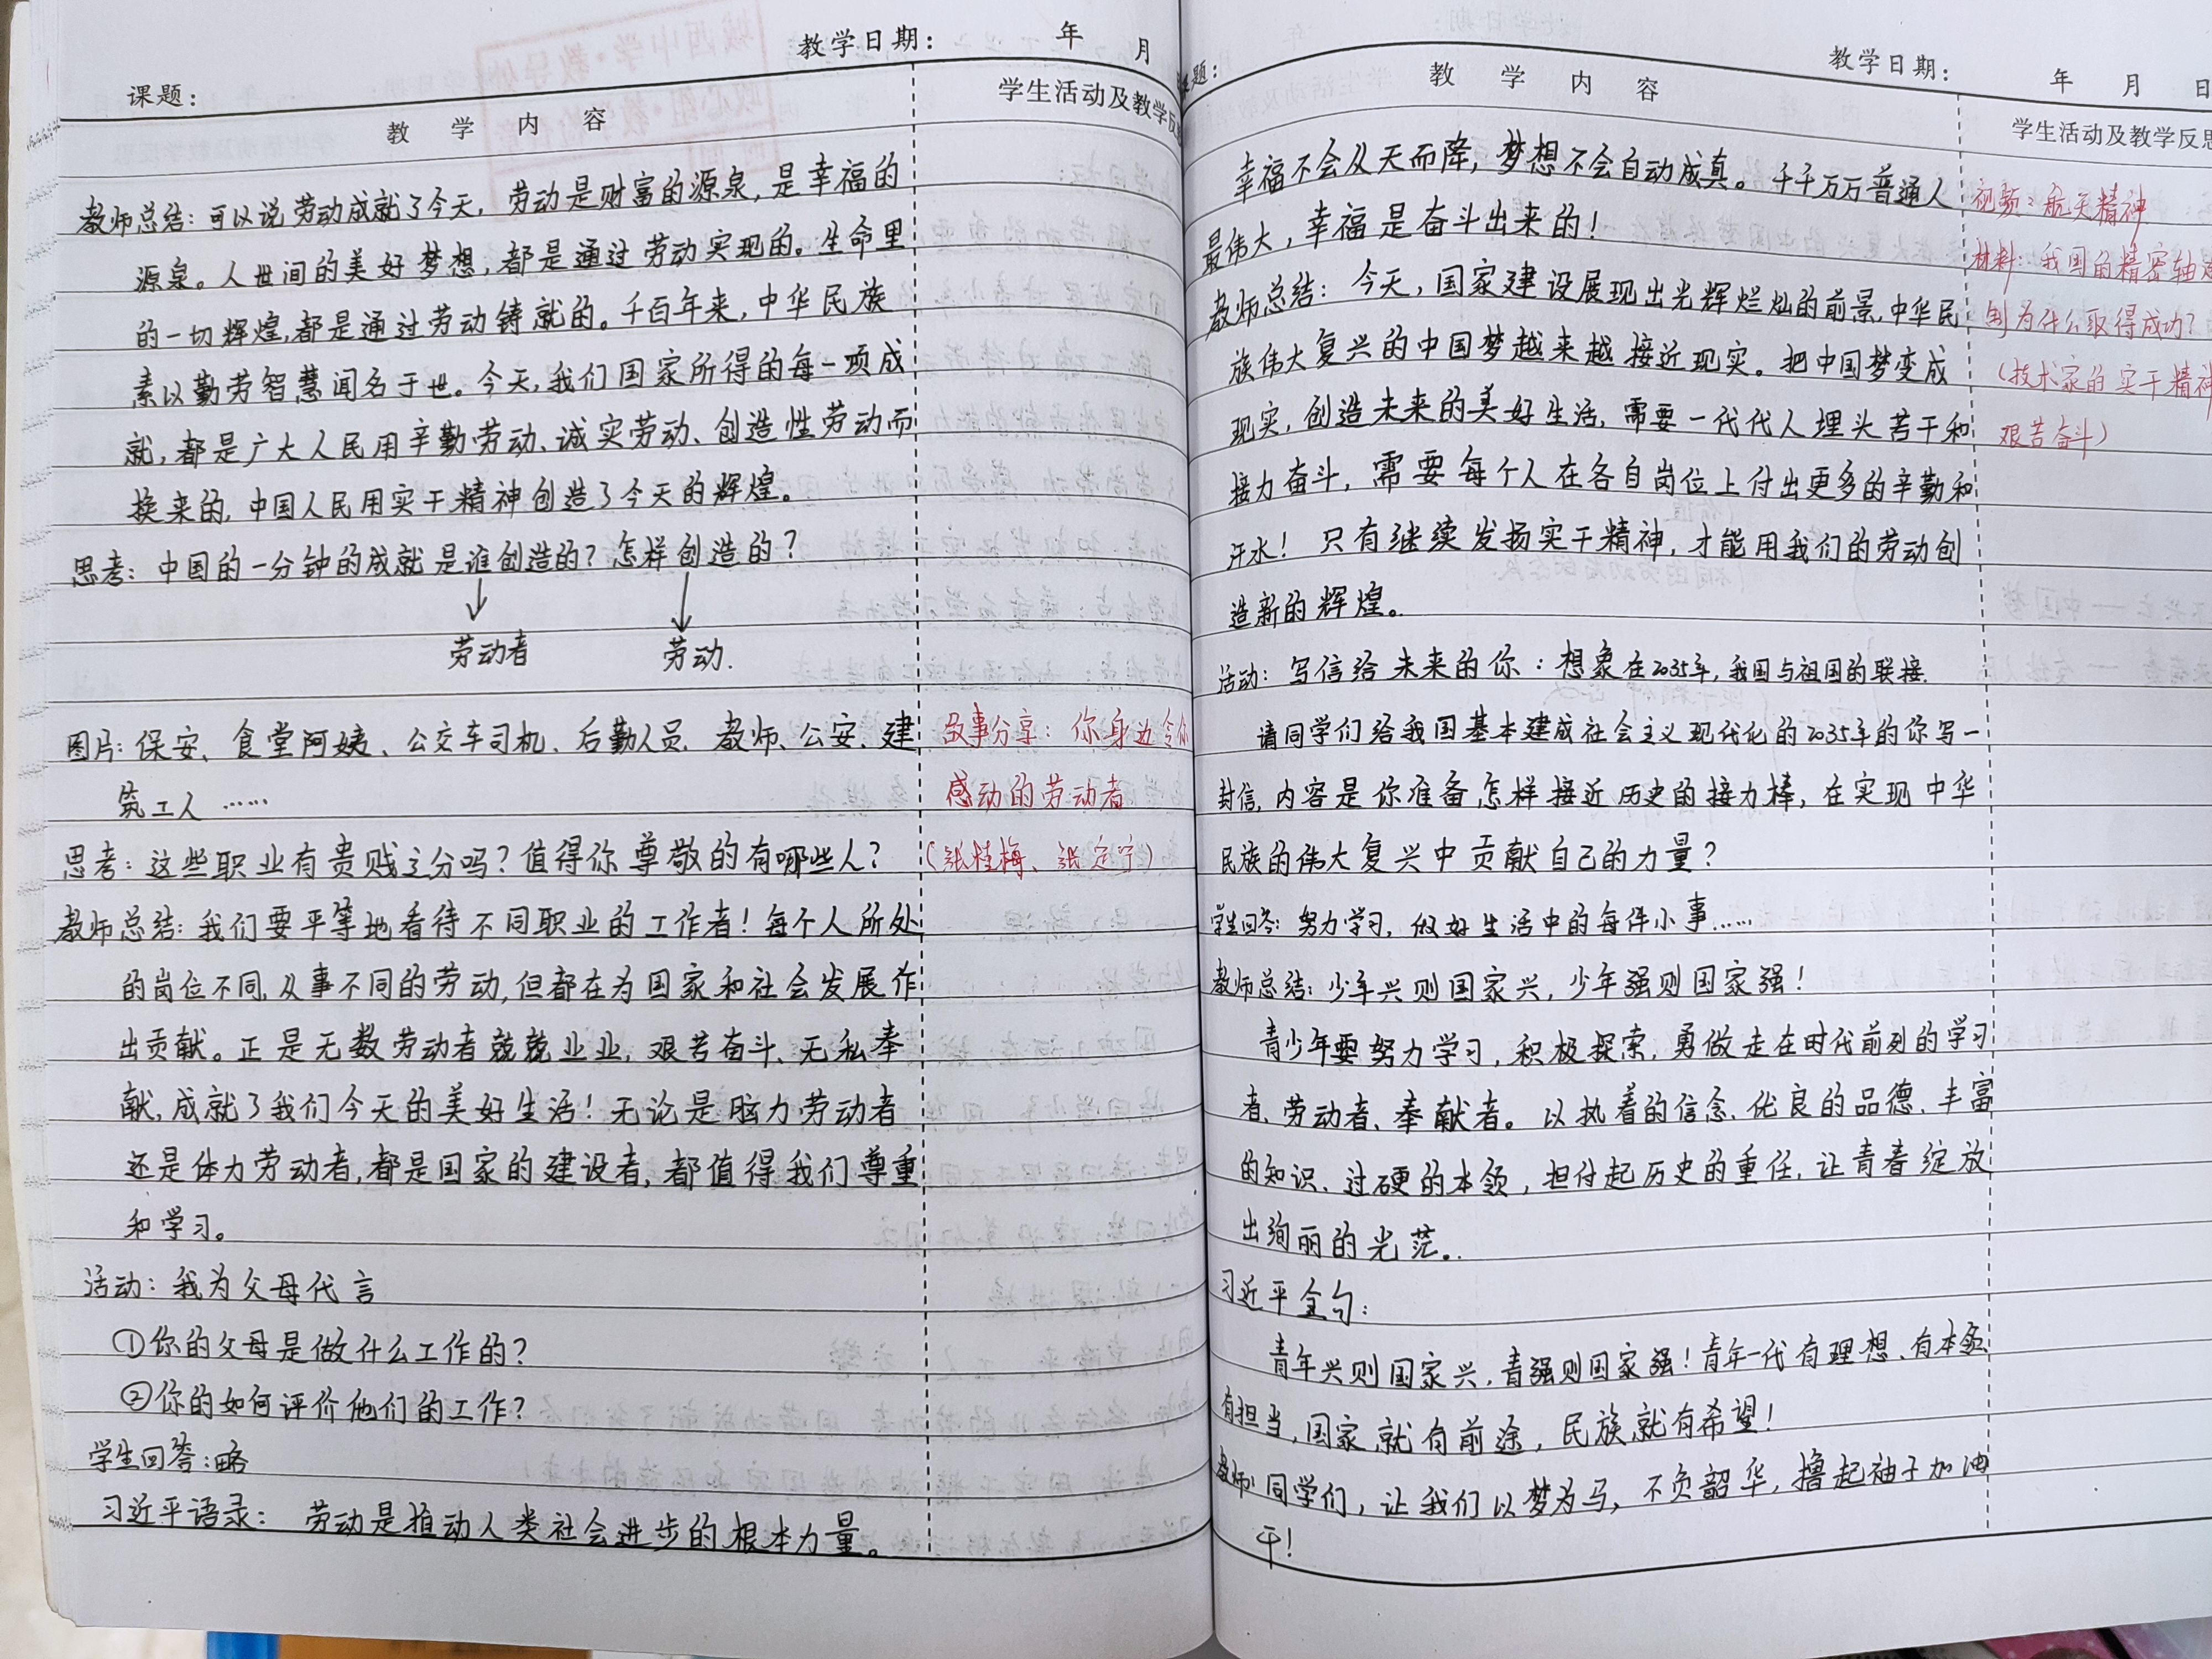 教学日期： 年 月
课题：
教 学 内 容
学生活动及教学反
教师总结：可以说劳动成就了今天，劳动是财富的源泉，是幸福的
源泉。人世间的美好梦想，都是通过劳动实现的。生命里
的一切辉煌，都是通过劳动铸就的。千百年来，中华民族
素以勤劳智慧闻名于世。今天，我们国家所得的每一项成
就，都是广大人民用辛勤劳动、诚实劳动、创造性劳动而
换来的，中国人民用实干精神创造了今天的辉煌。
思考：中国的一分钟的成就是谁创造的？怎样创造的？
劳动者 劳动.
图片：保安、食堂阿姨、公交车司机、后勤人员、教师、公安、建
筑工人……
故事分享：你身边令你
感动的劳动者
（张桂梅、张定宇）
思考：这些职业有贵贱之分吗？值得你尊敬的有哪些人？
教师总结：我们要平等地看待不同职业的工作者！每个人所处
的岗位不同，从事不同的劳动，但都在为国家和社会发展作
出贡献。正是无数劳动者兢兢业业，艰苦奋斗、无私奉
献，成就了我们今天的美好生活！无论是脑力劳动者
还是体力劳动者，都是国家的建设者，都值得我们尊重
和学习。
活动：我为父母代言
①你的父母是做什么工作的？
②你的如何评价他们的工作？
学生回答：略
习近平语录： 劳动是推动人类社会进步的根本力量。
教学日期： 年 月 日
题：
教 学 内 容
学生活动及教学反思
幸福不会从天而降，梦想不会自动成真。千千万万普通人
最伟大，幸福是奋斗出来的！
教师总结：今天，国家建设展现出光辉烂灿的前景，中华民
族伟大复兴的中国梦越来越接近现实。把中国梦变成
现实，创造未来的美好生活，需要一代代人埋头苦干和
接力奋斗，需要每个人在各自岗位上付出更多的辛勤和
汗水！只有继续发扬实干精神，才能用我们的劳动创
造新的辉煌。
视频：航天精神
材料：我国的精密轴
制为什么取得成功？
（技术家的实干精神
艰苦奋斗）
活动：写信给未来的你：想象在2035年，我国与祖国的联接.
请同学们给我国基本建成社会主义现代化的2035年的你写一
封信，内容是你准备怎样接近历史的接力棒，在实现中华
民族的伟大复兴中贡献自己的力量？
学生回答：努力学习，做好生活中的每件小事……
教师总结：少年兴则国家兴，少年强则国家强！
青少年要努力学习，积极探索，勇做走在时代前列的学习
者、劳动者、奉献者。以执着的信念、优良的品德、丰富
的知识、过硬的本领，担付起历史的重任，让青春绽放
出绚丽的光茫。
习近平金句：
青年兴则国家兴，青强则国家强！青年一代有理想、有本领
有担当，国家就有前途，民族就有希望！
教师：同学们，让我们以梦为马，不负韶华，撸起袖子加油
干！